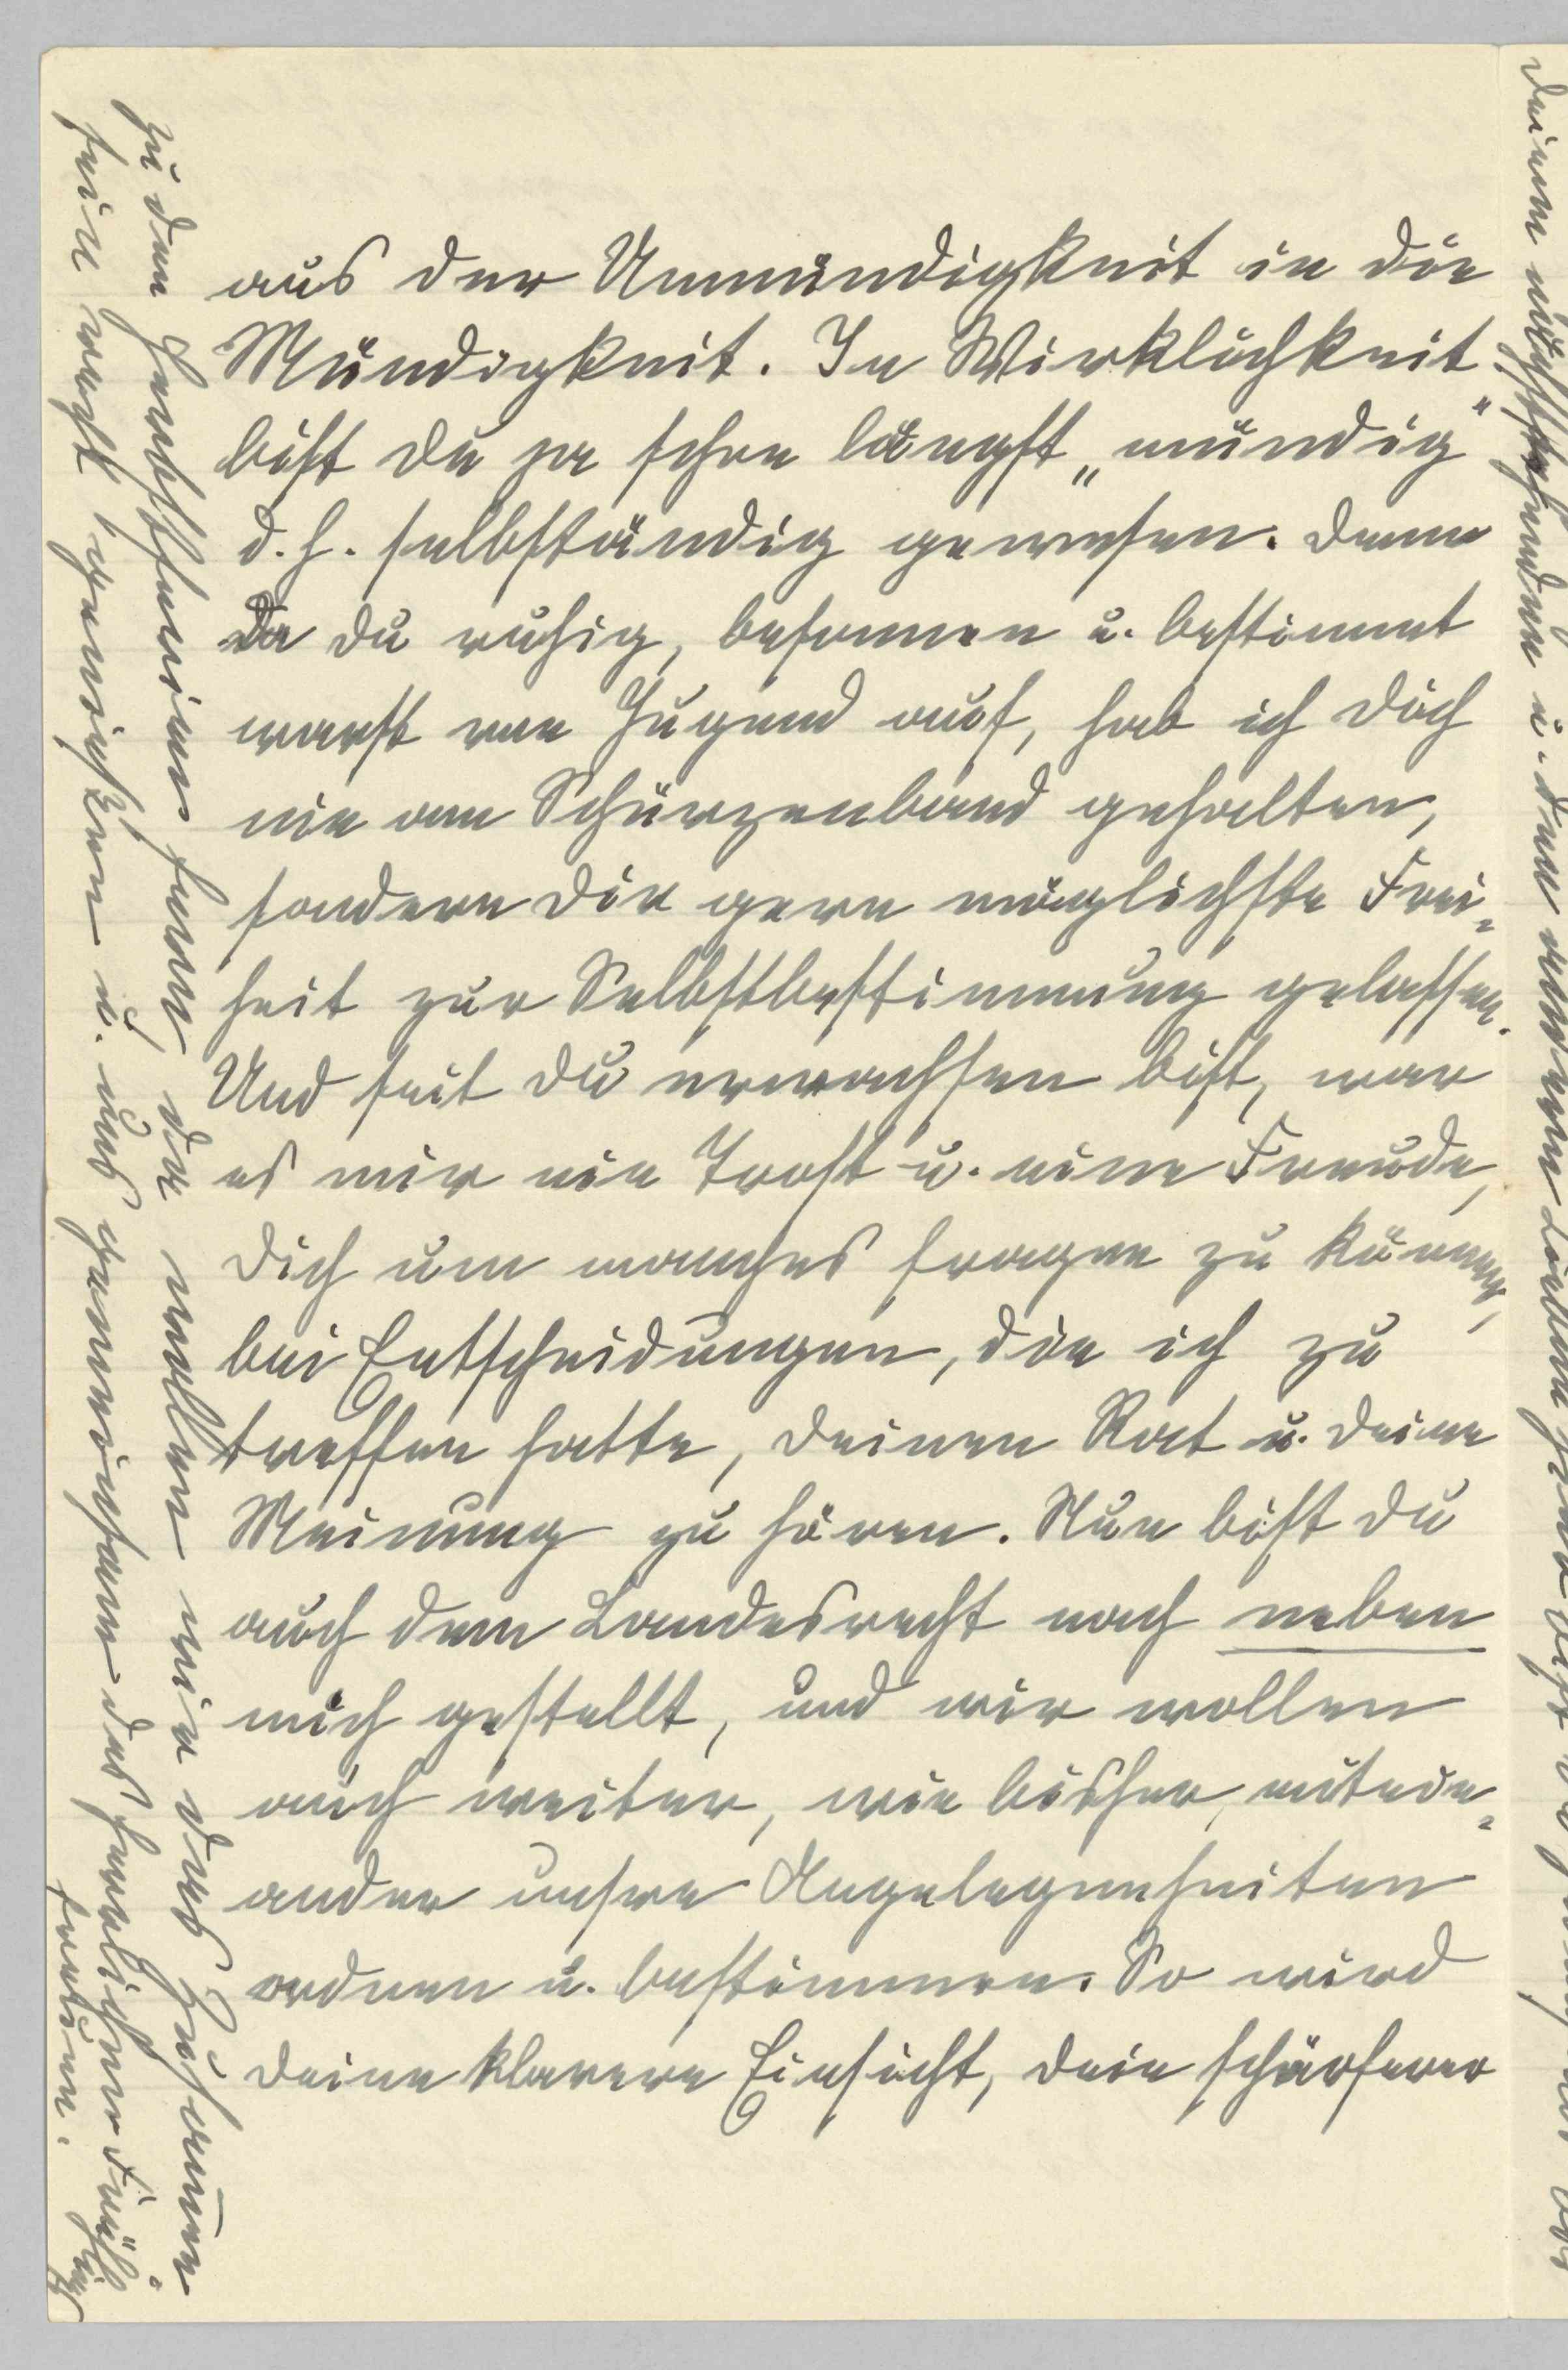 aus der Unmündigkeit in die
Mündigkeit. In Wirklichkeit
bist du ja schon längst „mündig“
d.h. selbständig gewesen. Denn
da du ruhig, besonnen u. bestimmt
warst von Jugend auf, hab ich dich
nie am Schürzenband gehalten,
sondern dir gern möglichste Frei-
heit zur Selbstbestimmung gelassen.
Und seit du erwachsen bist, war
es mir ein Trost u. eine Freude,
dich um manches fragen zu können,
bei Entscheidungen, die ich zu
treffen hatte, deinen Rat u. deine
Meinung zu hören. Nun bist du
auch dem Landesrecht nach neben
mich gestellt, und wir wollen
auch weiter, wie bisher, mitein-
ander unsre Angelegenheiten
ordnen u. bestimmen. So wird
deine klarere Einsicht, dein schärferer
zu den Herbstferien kommt, da wollen wir das Zusammen
sein recht genießen u. uns gemeinsam des herrlichen
freuen.